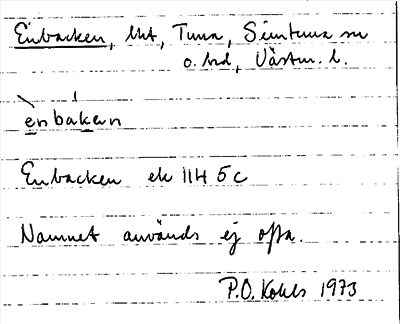 Enbacken, lht, Tuna, Simtuna sn
o. hd, Västm. l.
ènbáken
Enbacken ek 11H 5c
Namnet används ej ofta.
P.O. Kohls 1973